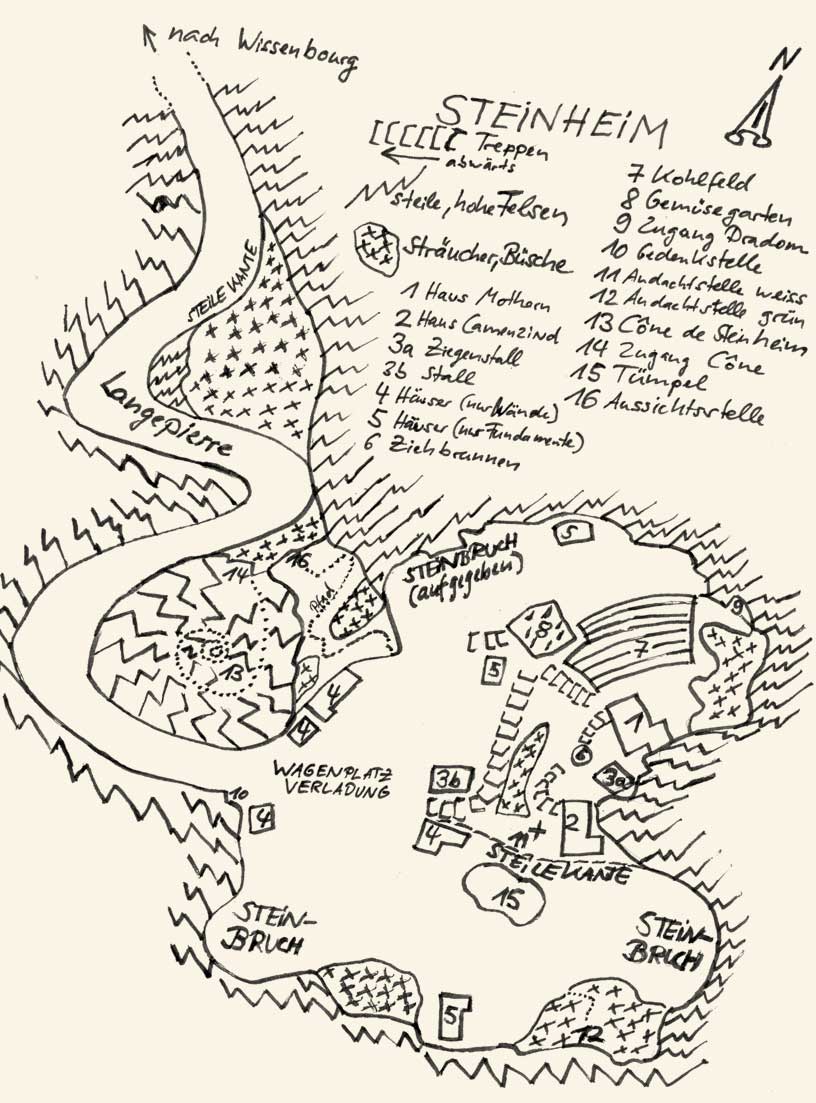 nach Wissenbourg
N
STEINHEIM
Treppen
abwärts
steile, hohe Felsen
Sträucher, Büsche
1 Haus Mothern
2 Haus Camenzind
3a Ziegenstall
3b Stall
4 Häuser (nur Wände)
5 Häuser (nur Fundamente)
6 Ziehbrunnen
7 Kohlfeld
8 Gemüsegarten
9 Zugang Dradom
10 Gedenkstelle
11 Andachtstelle weiss
12 Andachtstelle grün
13 Cône de Steinheim
14 Zugang Cône
15 Tümpel
16 Aussichtsstelle
STEILE KANTE
Langepierre
STEINBRUCH
(aufgegeben)
5
16
14
Pfad
13
9
8
7
5
4
4
1
6
3a
WAGENPLATZ
VERLADUNG
3b
10
4
4
2
11
STEILE KANTE
15
STEIN-
BRUCH
STEIN-
BRUCH
5
12